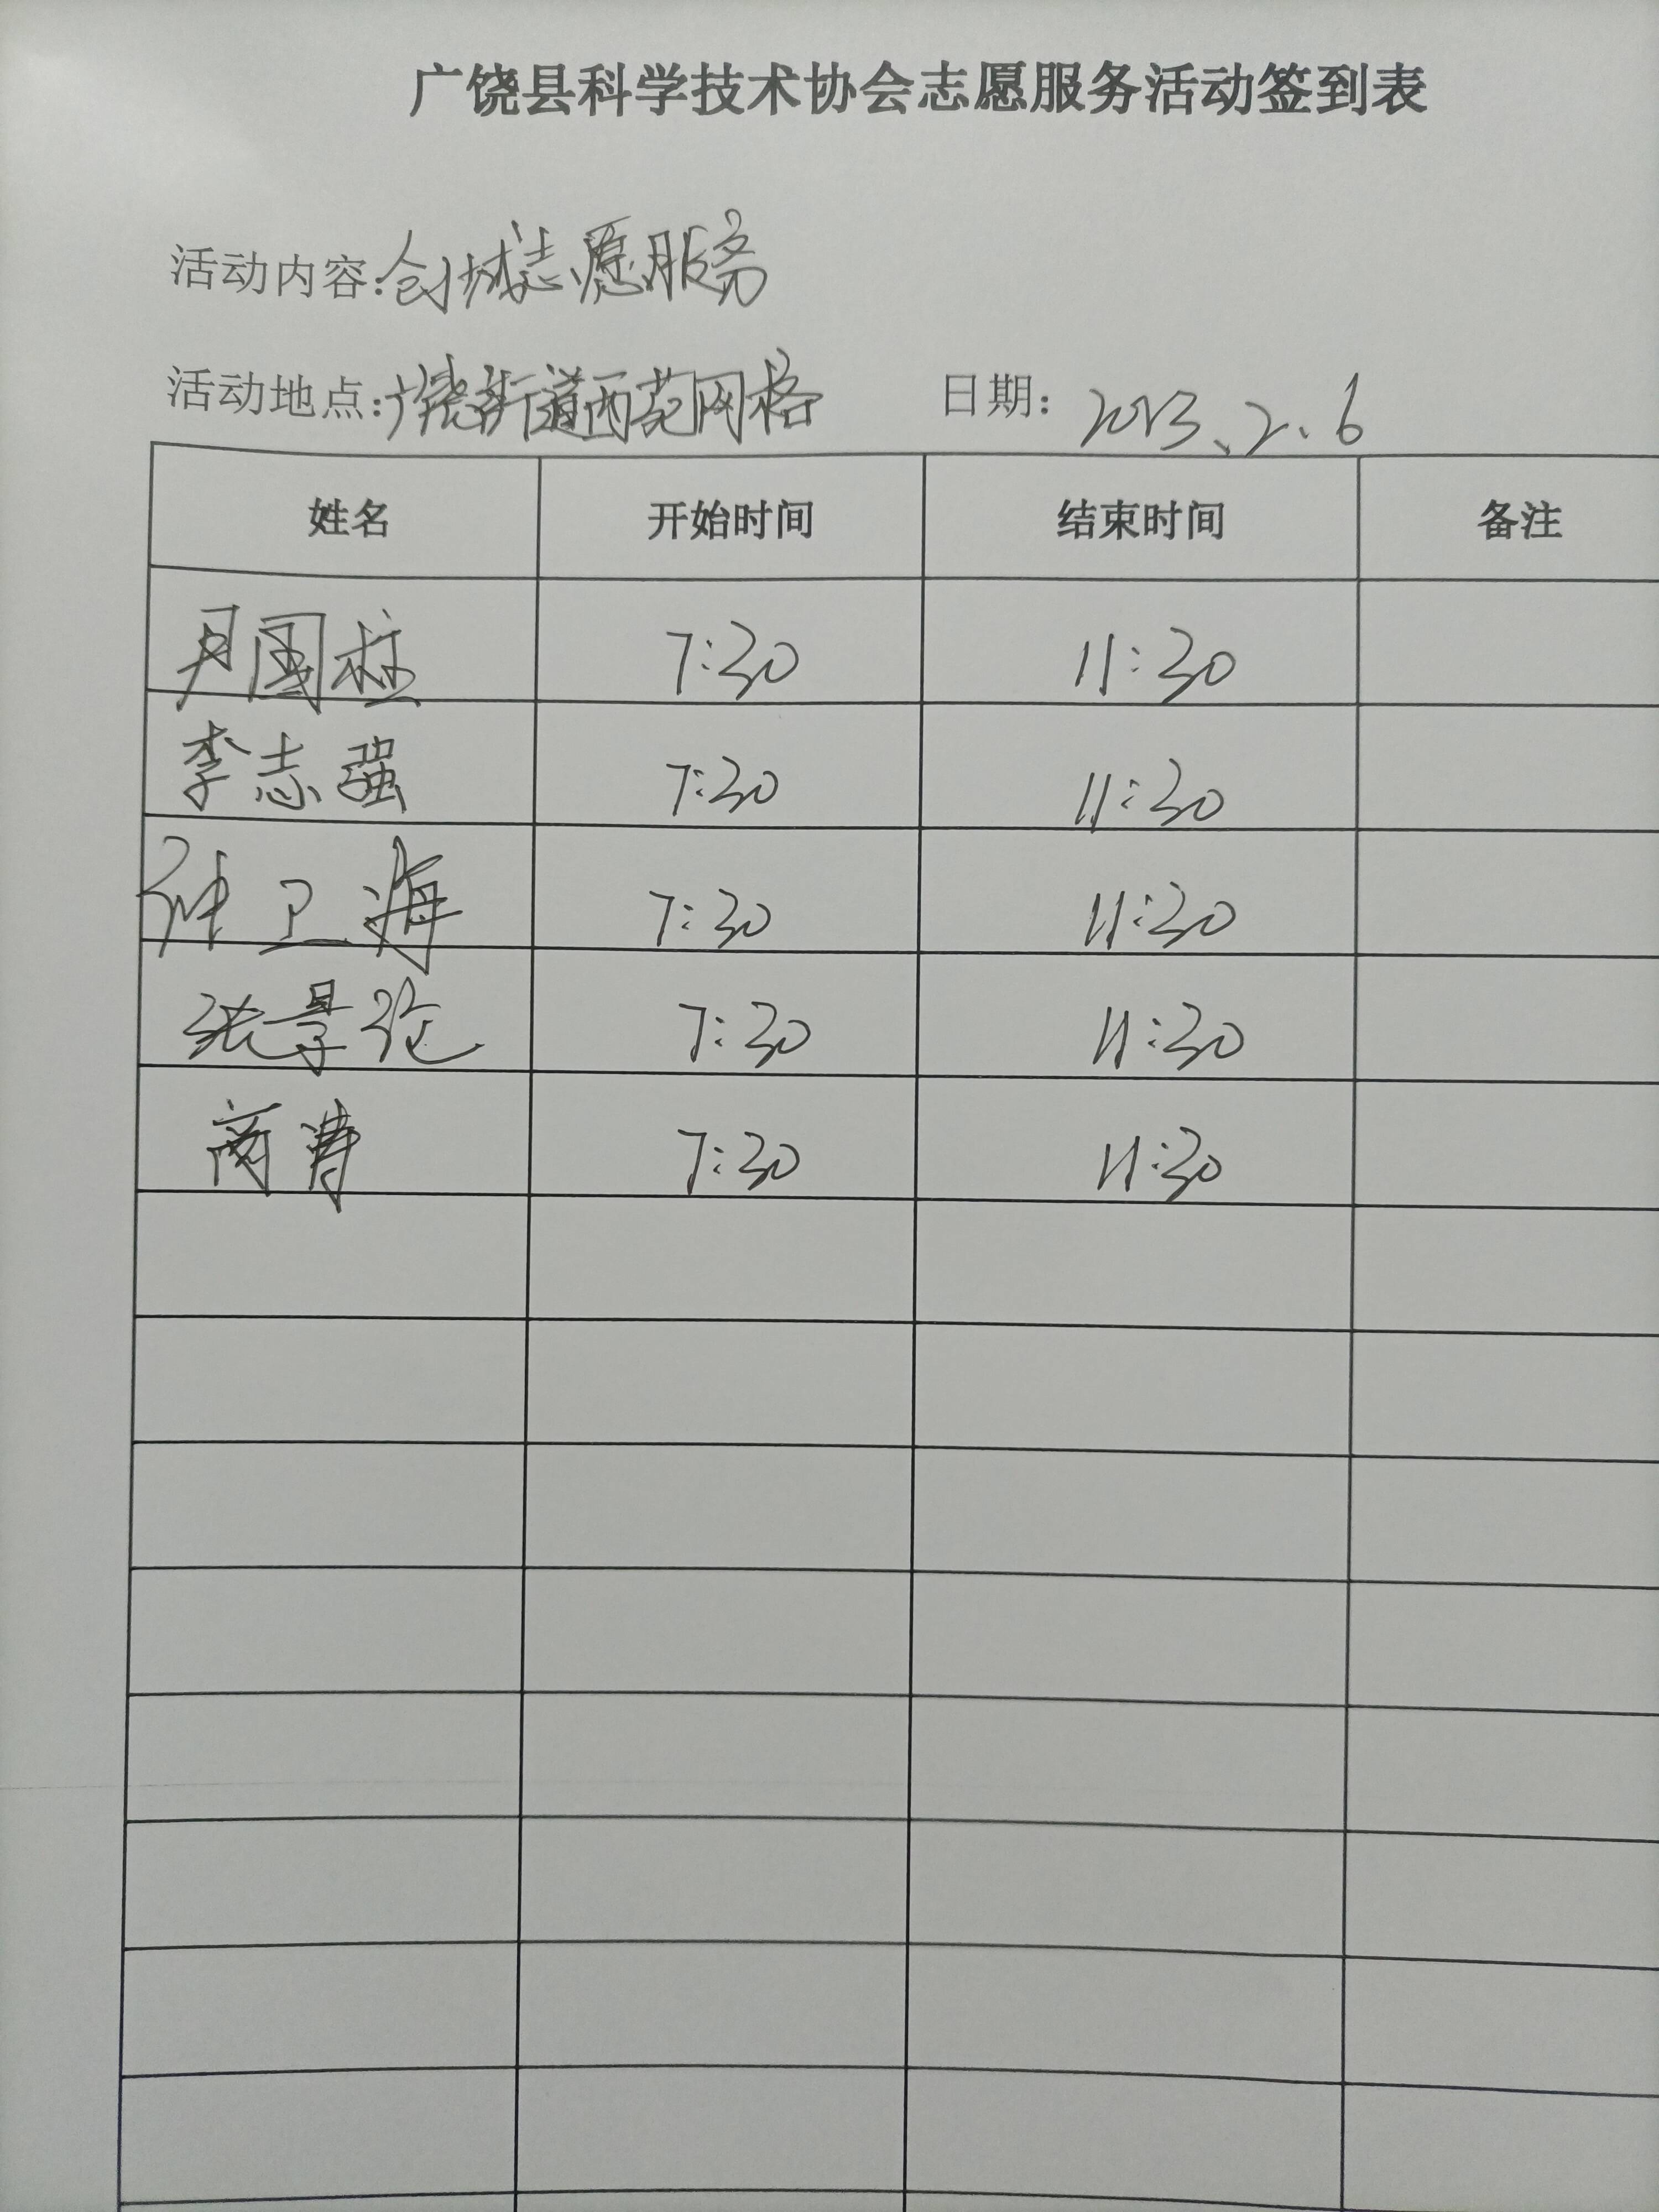 广饶县科学技术协会志愿服务活动签到表
活动内容:创城志愿服务
活动地点:广饶街道西苑网格 日期: 2023、2、6
姓名 开始时间 结束时间 备注
尹国柱 7:30 11:30
李志强 7:30 11:30
钟卫海 7:30 11:30
张景 7:30 11:30
商涛 7:30 11:30